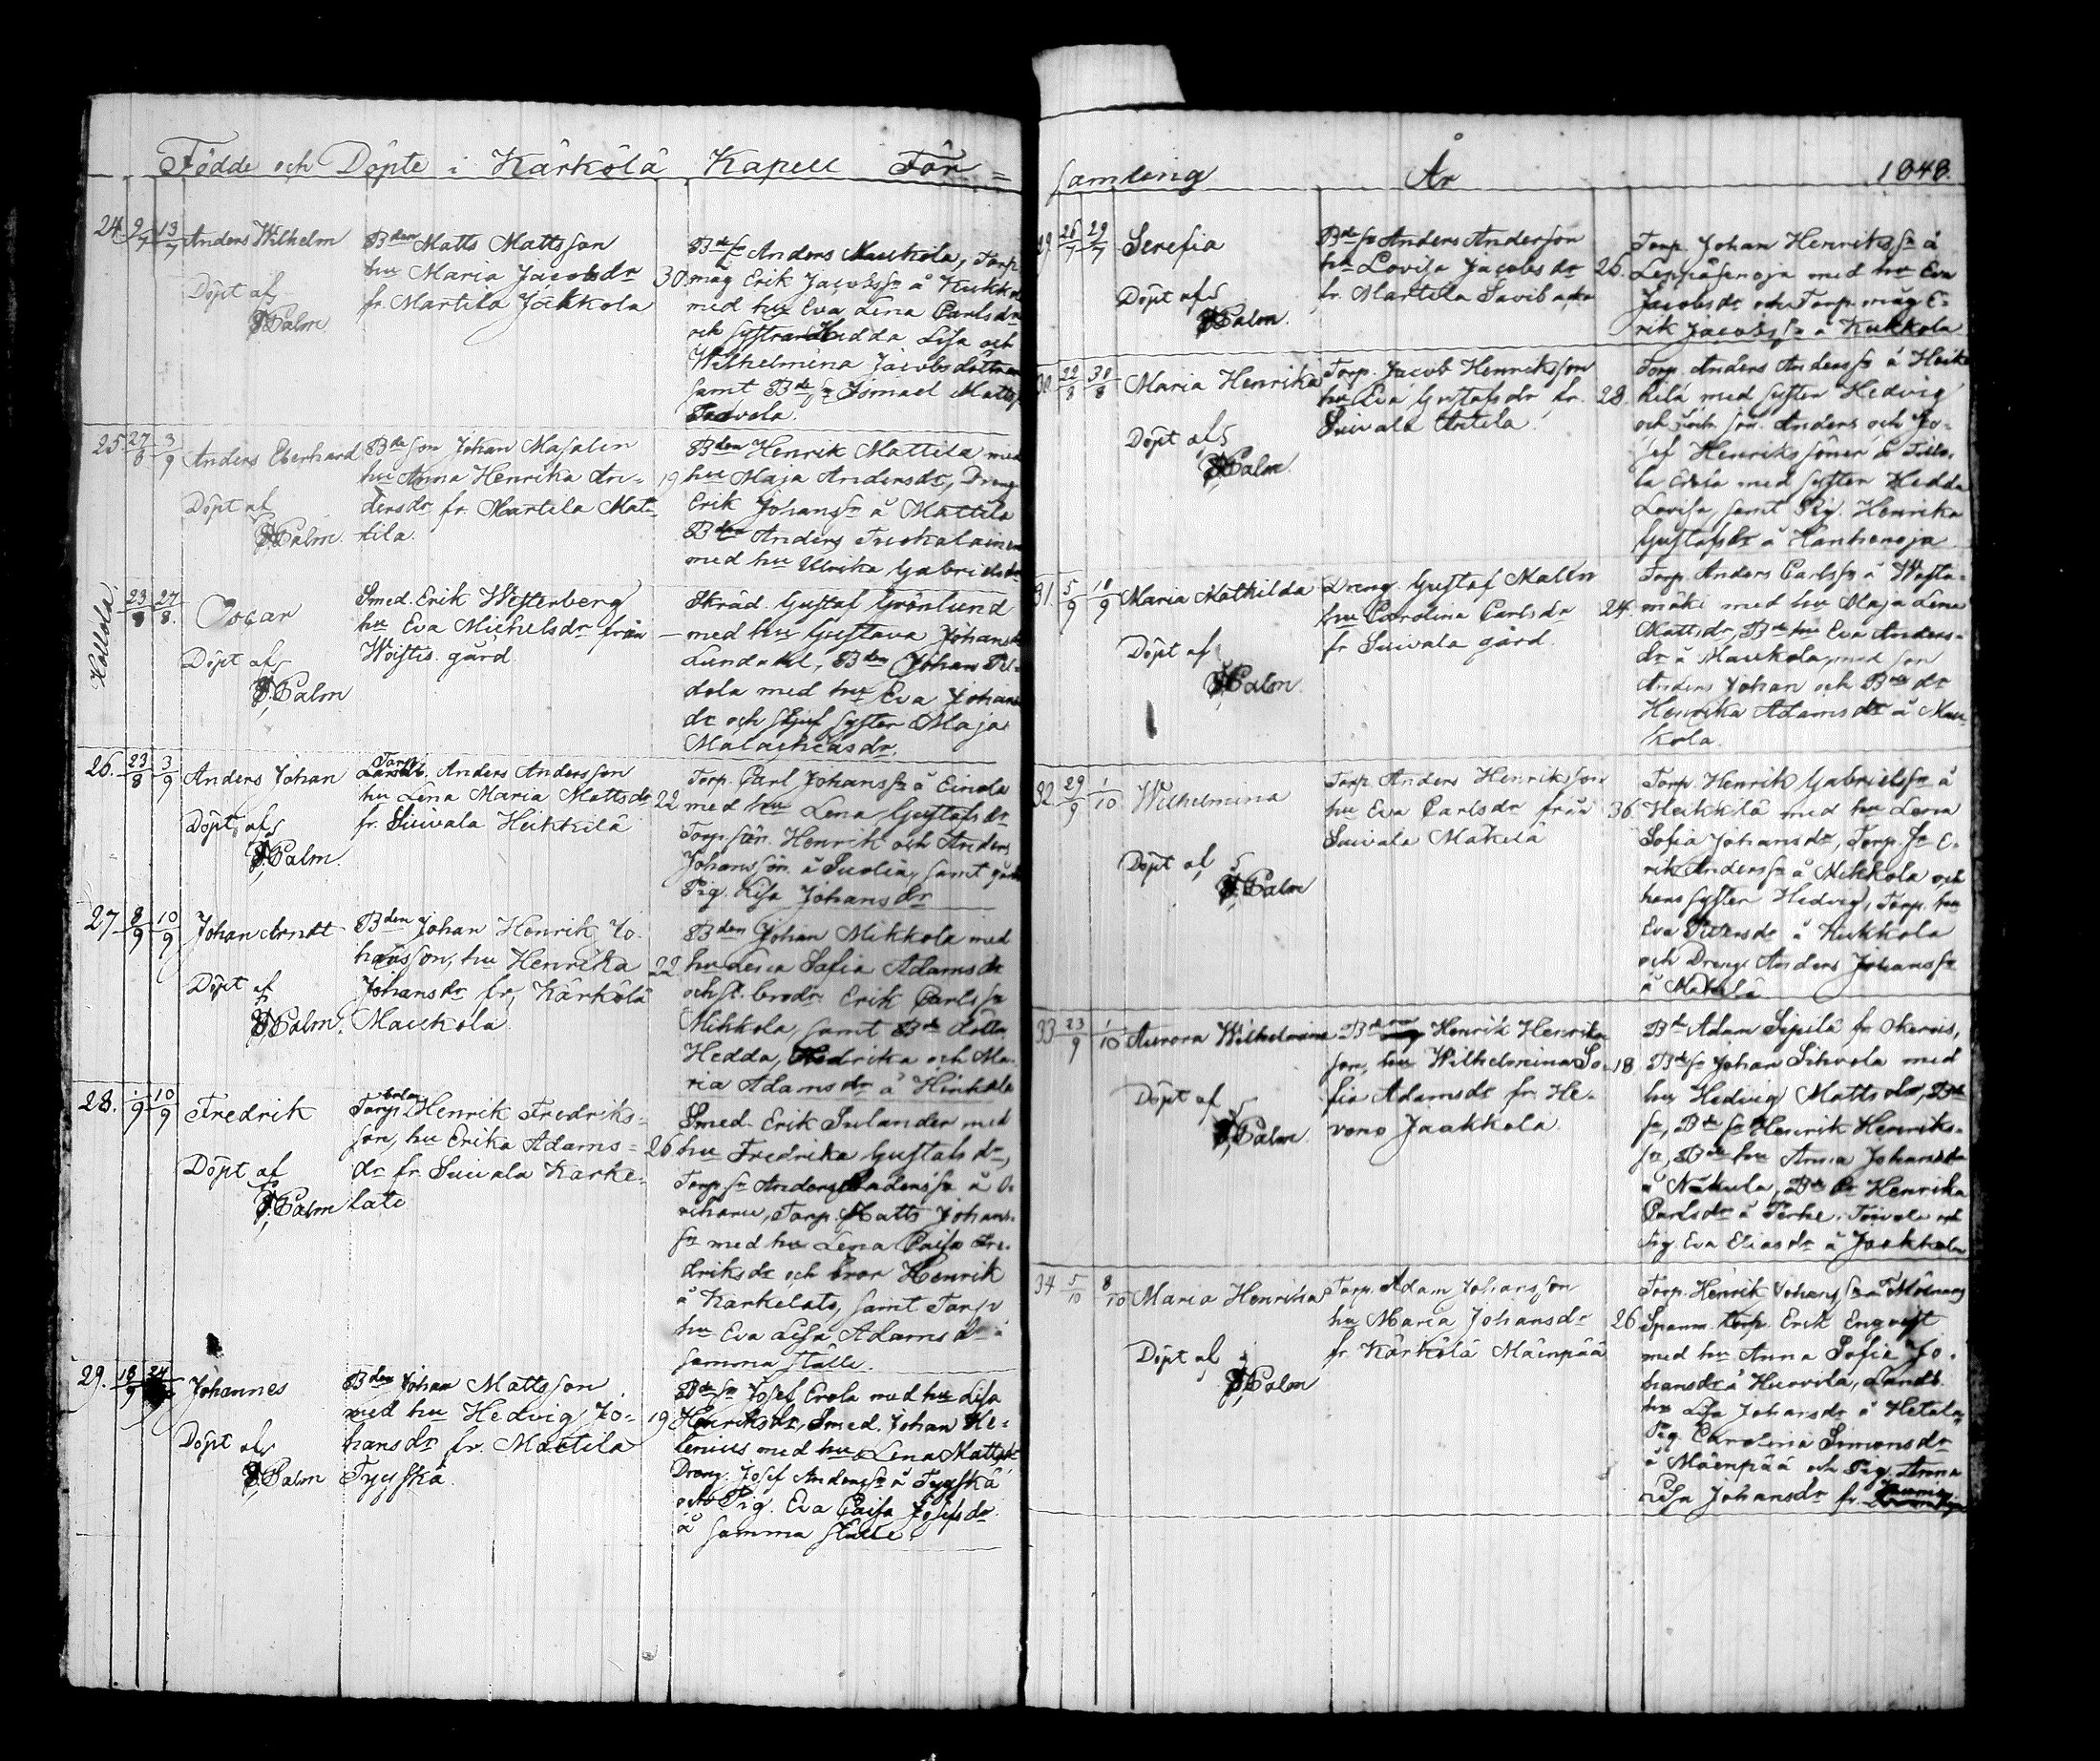 Födde och Döpte i Kärkölä Kapell För=
24. 9/7 13/7 Anders Wilhelm
Döpt af
Palm
Bden Matts Mattsson
hu Maria Jacobsdr
fr. Martila Jaakkola
30
Bdesn Anders Maukola, Torp.
måg Erik Jacobssn å Kukkola
med hu Eva Lena Carlsdr
och systrar Hedda Lisa och
Wilhelmina Jacobsdöttrar
samt Bdesn Ismael Matts
Toivola.
25. 27/8 3/9 Anders Eberhard
Döpt af
Palm
Bdeson Johan Masalin
hu Anna Henrika An-
dersdr fr. Martela Mat-
tila.
19
Bden Henrik Mattila med
hu Maja Andersdr, Dreng
Erik Johanssn å Mattila
Bden Anders Tuokalainen
med hu Ulrika Gabrielsdr
Hollola.
23/8 27/8. Oscar
Döpt af
Palm
Smed. Erik Westerberg
hu Eva Michelsdr från
Woistis gård
—
Skräd. Gustaf Grönlund
med hu Gustava Johansdr
Lundahl, Bden Johan
dola med hu Eva Johans
dr och syster Maja
Malachiasdr.
26. 23/8 3/9 Anders Johan
Döpt af
Palm.
Torp. Anders Andersson
hu Lena Maria Mattsdr
fr. Suivala Heikkilä
22
Torp. Carl Johanssn å Einola
med hu Lena Gustafsdr
Torp. sön. Henrik och Anders
Johanssön. å samt
Pig. Lisa Johansdr
27 8/9 10/9 Johan Arndt
Döpt af
Palm.
Bden Johan Henrik Jo-
hansson, hu Henrika
Johansdr fr. Kärkölä
Maukola
22
Bden Johan Mikkola med
hu Lena Sofia Adamsdr
och brodr. Erik Carlssn
Mikkola, samt Bde döttr.
Hedda, Fredrika och Ma-
ria Adamsdr å Hinkala
28. 1/9 10/9 Fredrik
Döpt af
Palm
Torp. Henrik Fredriks-
son, hu Erika Adams-
dr fr Suivala Karke-
lato
26
Smed. Erik Sulander med
hu Fredrika Gustafsdr,
Torp. sn Anders å O-
Torp. Matts Johans-
sn med hu Lena Caisa Fre-
driksdr och bror Henrik
å Karkelato, samt Torp
hu Eva Lisa Adamsdr å
samma ställe.
29. 18/9 24 Johannes
Döpt af
Palm
Bden Johan Mattsson
med hu Hedvig Jo-
hansdr fr. Martila
Tyyskä.
19
Bdesn Josef Erola med hu Lisa
Henriksdr, Smed. Johan He-
lenius med hu Lena Mattsdr
Dreng. Josef Anderssn å Tyyskä
och Pig. Eva Caisa Josefsdr
å samma ställe.
samling År 1848.
29. 26/7 29/7 Serefia
Döpt af
Palm.
Bdesn Anders Anderson
hu Lovisa Jacobsdr
fr. Martela Savibacka
26.
Torp. Johan Henrikssn å
Leppäsenoja med hu Eva
Jacobsdr och Torp. måg E-
rik Jacobssn å Kukkola
30. 22/8 30/8 Maria Henrika
Döpt af
Palm.
Torp. Jacob Henriksson
hu Eva Gustafsdr fr.
Suivala Antila
28.
Torp. Anders Anderssn å Heik
kilä med syster Hedvig
och sön. Anders och Jo-
sef Henriks söner å
la med syster Hedda
Lovisa, samt Pig. Henrika
Gustafsdr å Hankenoja
31. 5/9 10/9 Maria Mathilda
Döpt af
Palm.
Dreng. Gustaf Malin
hu Carolina Carlsdr
fr Suivala gård.
24.
Torp. Anders Carlssn å
mäki med hu Maja Lena
Mattsdr, Bde hu Eva Anders-
dr å Maukola, med son
Anders Johan och Bde dr
Henrika Adamsdr å Mau-
kola.
32. 29/9 1/10 Wilhelmina
Döpt af
Palm
Torp. Anders Henriksson
hu Eva Carlsdr från
Suivala Mäkelä
36.
Torp. Henrik Gabrielssn å
Heikkilä med hu Lena
Sofia Johansdr, Torp. sn E-
rik Anderssn å Mikkola och
hans syster Hedvig, Torp. hu
Eva Petersdr å Kukkola
och Dreng. Anders Johanssn
å Mäkelä
33 23/9 1/10 Aurora Wilhelmina
Döpt af
Palm.
Bde Henrik Henriks
son, hu Wilhelmina So-
fia Adamsdr fr. He-
vono Jaakkola
18
Bde Adam Sipilä fr
Bdesn Johan Sihvola med
hu Hedvig Mattsdr, Bde
sn, Bdesn Henrik Henriks-
sn, Bde hu Anna Johansdr
å Nakula, Bde dr Henrika
Carlsdr å Perhe. Toivola och
Pig. Eva Eliasdr å Jaakkola
34 5/10 8/10 Maria Henrika
Döpt af
Palm
Torp. Adam Johansson
hu Maria Johansdr
fr. Kärkölä Mäenpää
26
Torp. Henrik Johanssn å
Spanm. torp. Erik Engqvist
med hu Anna Sofia Jo-
hansdr å Huovila, Landb.
hu Lisa Johansdr å
Pig. Carolina Simonsdr
å Mäenpää och Pig. Anna
Lisa Johansdr fr.